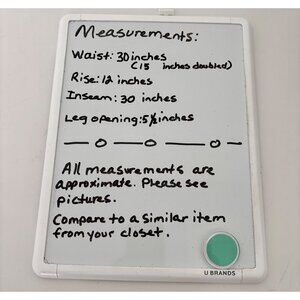 Measurements:
Waist: 30 inches
(15 inches doubled)
Rise: 12 inches
Inseam: 30 inches
Leg opening: 5½ inches
All measurements are
approximate. Please see
pictures.
Compare to a similar item
from your closet.
U BRANDS